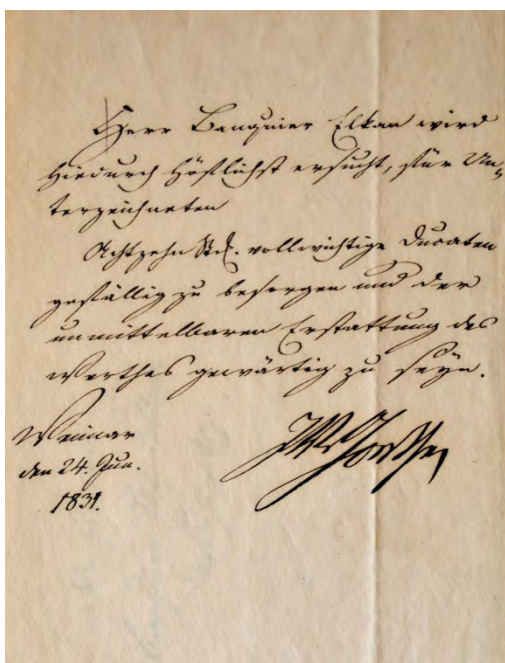 Herr Banquier Elkan wird
hiedurch höflichst ersucht, für Un-
terzeichneten
Achtzehn Stck. vollwichtige Ducaten
gefällig zu besorgen und der
unmittelbaren Erstattung des
Werthes gewärtig zu seyn.
Weimar
den 24. Jun.
1831.
JWGoethe